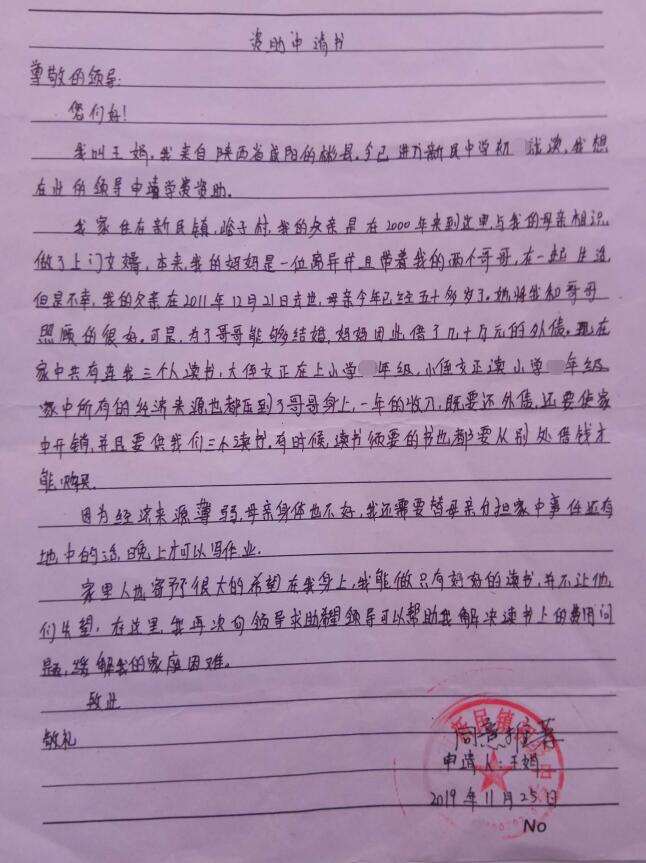 资助申请书
尊敬的领导:
您们好!
我叫王娟,我来自陕西省咸阳的彬县,今已进入新民中学初就读,我想
在此的领导申请学费资助。
我家住在新民镇,峪子村,我的父亲是在2000年来到这里与我的母亲相识,
做了上门女婿,本来,我的妈妈是一位离异并且带着我的两个哥哥,在一起生活
但是不幸,我的父亲在2011年12月21日去世,母亲今年已经五十多岁了。她将我和哥哥
照顾的很好。可是,为了哥哥能够结婚,妈妈因此借了几十万元的外债。现在
家中共有连我三个人读书,大侄女正在上小学年级,小侄女正读小学年级。
家中所有的经济来源也都压到了哥哥身上,一年的收入,既要还外债,还要使家
中开销,并且要供我们三个读书,有时候,读书须要的书也都要从别处借钱才
能购买。
因为经济来源薄弱,母亲身体也不好,我还需要替母亲分担家中事任还有
地中的活,晚上才可以写作业。
家里人也寄予很大的希望在我身上,我能做只有好好的读书,并不让他
们失望,在这里,我再次向领导求助希望领导可以帮助我解决读书上的费用问
题,缓解我的家庭困难。
致此
敬礼
申请人:王娟
2019年11月25日
No